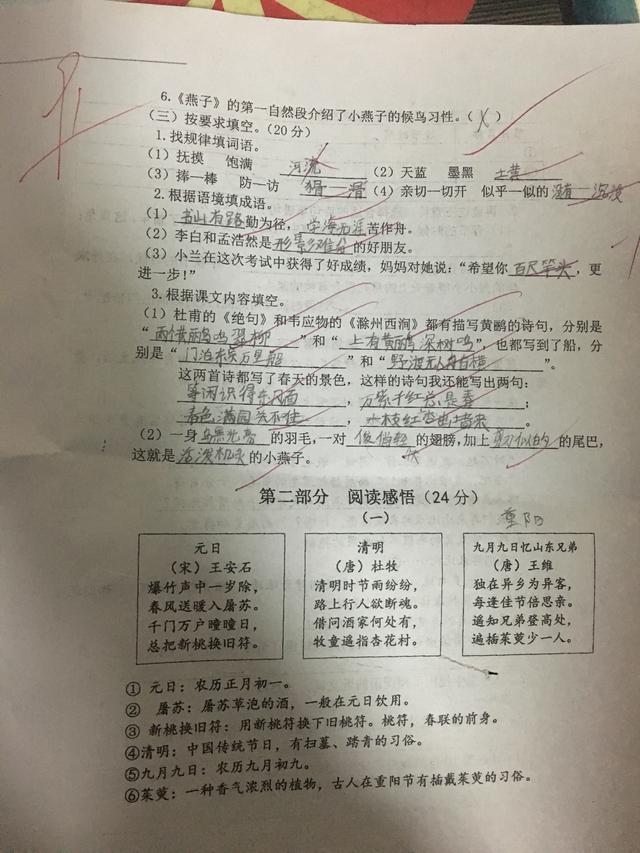 6.《燕子》的第一自然段介绍了小燕子的候鸟习性。(X)
(三)按要求填空。(20分)
1.找规律填词语。
(1)抚摸 饱满 河流 (2)天蓝 墨黑 土黄
(3)捧一棒 防一访 猾一滑 (4)亲切一切开 似乎一似的 没有一沉没
2.根据语境填成语。
(1)书山有路勤为径,学海无涯苦作舟。
(2)李白和孟浩然是形影难分的好朋友。
(3)小兰在这次考试中获得了好成绩,妈妈对她说:“希望你百尺竿头,更
进一步!”
3.根据课文内容填空。
(1)杜甫的《绝句》和韦应物的《滁州西涧》都有描写黄鹂的诗句,分别是
“两个黄鹂鸣翠柳”和“上有黄鹂深树鸣”,也都写到了船,分
别是“门泊东吴万里船”和“野渡无人舟自横”。
这两首诗都写了春天的景色,这样的诗句我还能写出两句:
等闲识得东风面,万紫千红总是春;
春色满园关不住,一枝红杏出墙来。
(2)一身乌黑光亮的羽毛,一对俊俏轻的翅膀,加上剪似的的尾巴,
这就是活泼机灵的小燕子。
第二部分 阅读感悟(24分)
(一)
重阳
元日
(宋)王安石
爆竹声中一岁除,
春风送暖入屠苏。
千门万户曈曈日,
总把新桃换旧符。
清明
(唐)杜牧
清明时节雨纷纷,
路上行人欲断魂。
借问酒家何处有,
牧童遥指杏花村。
九月九日忆山东兄弟
(唐)王维
独在异乡为异客,
每逢佳节倍思亲。
遥知兄弟登高处,
遍插茱萸少一人。
① 元日:农历正月初一。
② 屠苏:屠苏草泡的酒,一般在元日饮用。
③ 新桃换旧符:用新桃符换下旧桃符。桃符,春联的前身。
④清明:中国传统节日,有扫墓、踏青的习俗。
⑤九月九日:农历九月初九。
⑥茱萸:一种香气浓烈的植物,古人在重阳节有插戴茱萸的习俗。